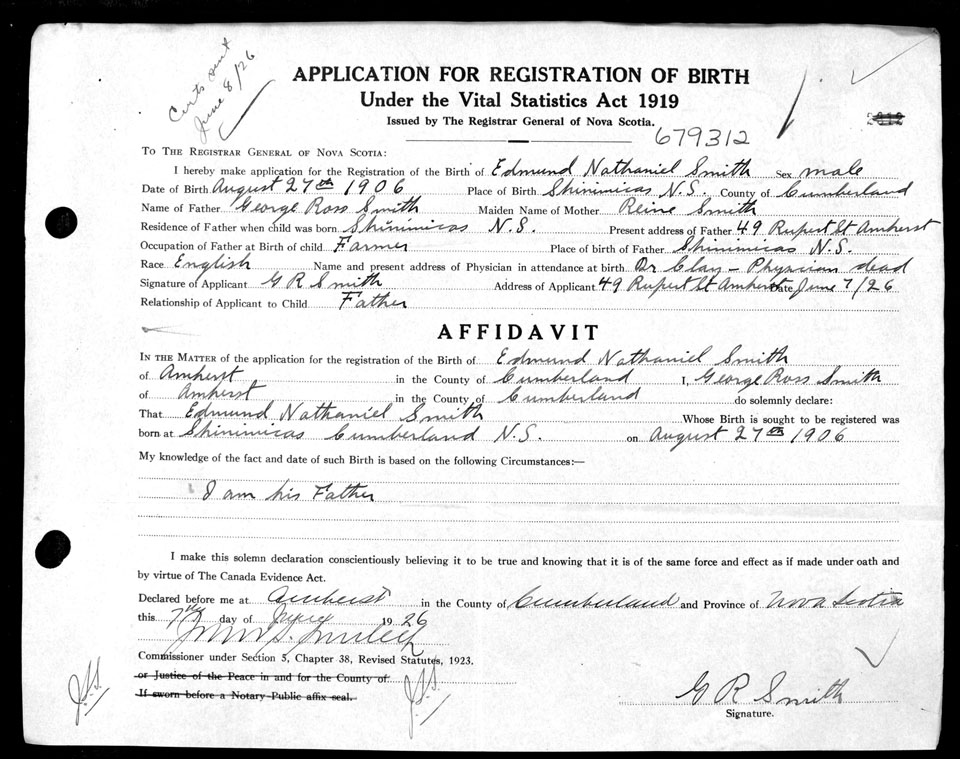 Certs sent
June 8/26
APPLICATION FOR REGISTRATION OF BIRTH
Under the Vital Statistics Act 1919
Issued by The Registrar General of Nova Scotia.
679312
TO THE REGISTRAR GENERAL OF NOVA SCOTIA:
I hereby make application for the Registration of the Birth of Edmund Nathaniel Smith Sex male
Date of Birth August 27th 1906 Place of Birth Shinimicas N.S. County of Cumberland
Name of Father George Ross Smith Maiden Name of Mother Reine Smith
Residence of Father when child was born Shinimicas N.S. Present address of Father 49 Rupert St Amherst
Occupation of Father at Birth of child Farmer Place of birth of Father Shinimicas N.S.
Race English Name and present address of Physician in attendance at birth Dr Clay - Physician dead
Signature of Applicant G R Smith Address of Applicant 49 Rupert St Amherst Date June 7/26
Relationship of Applicant to Child Father
AFFIDAVIT
IN THE MATTER of the application for the registration of the Birth of Edmund Nathaniel Smith
of Amherst in the County of Cumberland I, George Ross Smith
of Amherst in the County of Cumberland do solemnly declare:
That Edmund Nathaniel Smith Whose Birth is sought to be registered was
born at Shinimicas Cumberland N.S. on August 27th 1906
My knowledge of the fact and date of such Birth is based on the following Circumstances:—
I am his Father
I make this solemn declaration conscientiously believing it to be true and knowing that it is of the same force and effect as if made under oath and
by virtue of The Canada Evidence Act.
Declared before me at Amherst in the County of Cumberland and Province of Nova Scotia
this 7th day of June 1926
Commissioner under Section 5, Chapter 38, Revised Statutes, 1923.
or Justice of the Peace in and for the County of
If sworn before a Notary Public affix seal.
G R Smith
Signature.